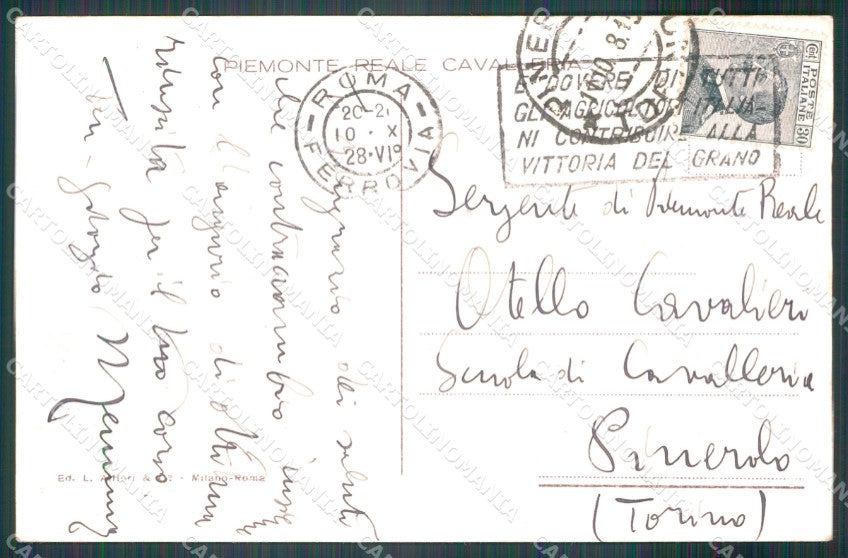 PIEMONTE REALE CAVALLERIA
ROMA
FERROVIA
20-21
10 · X
28 · VI°
E' DOVERE DI TUTTI
GLI AGRICOLTORI ITALIA-
NI CONTRIBUIRE ALLA
VITTORIA DEL GRANO
POSTE
ITALIANE
30
Sergente di Piemonte Reale
Otello Cavalieri
Scuola di Cavalleria
Pinerolo
(Torino)
dei saluti
che contraccambio
con l'augurio di ottima
riuscita per il tuo corso
Ten.
Ed. L. Alfieri & C° - Milano-Roma
CARTOLINOMANIA